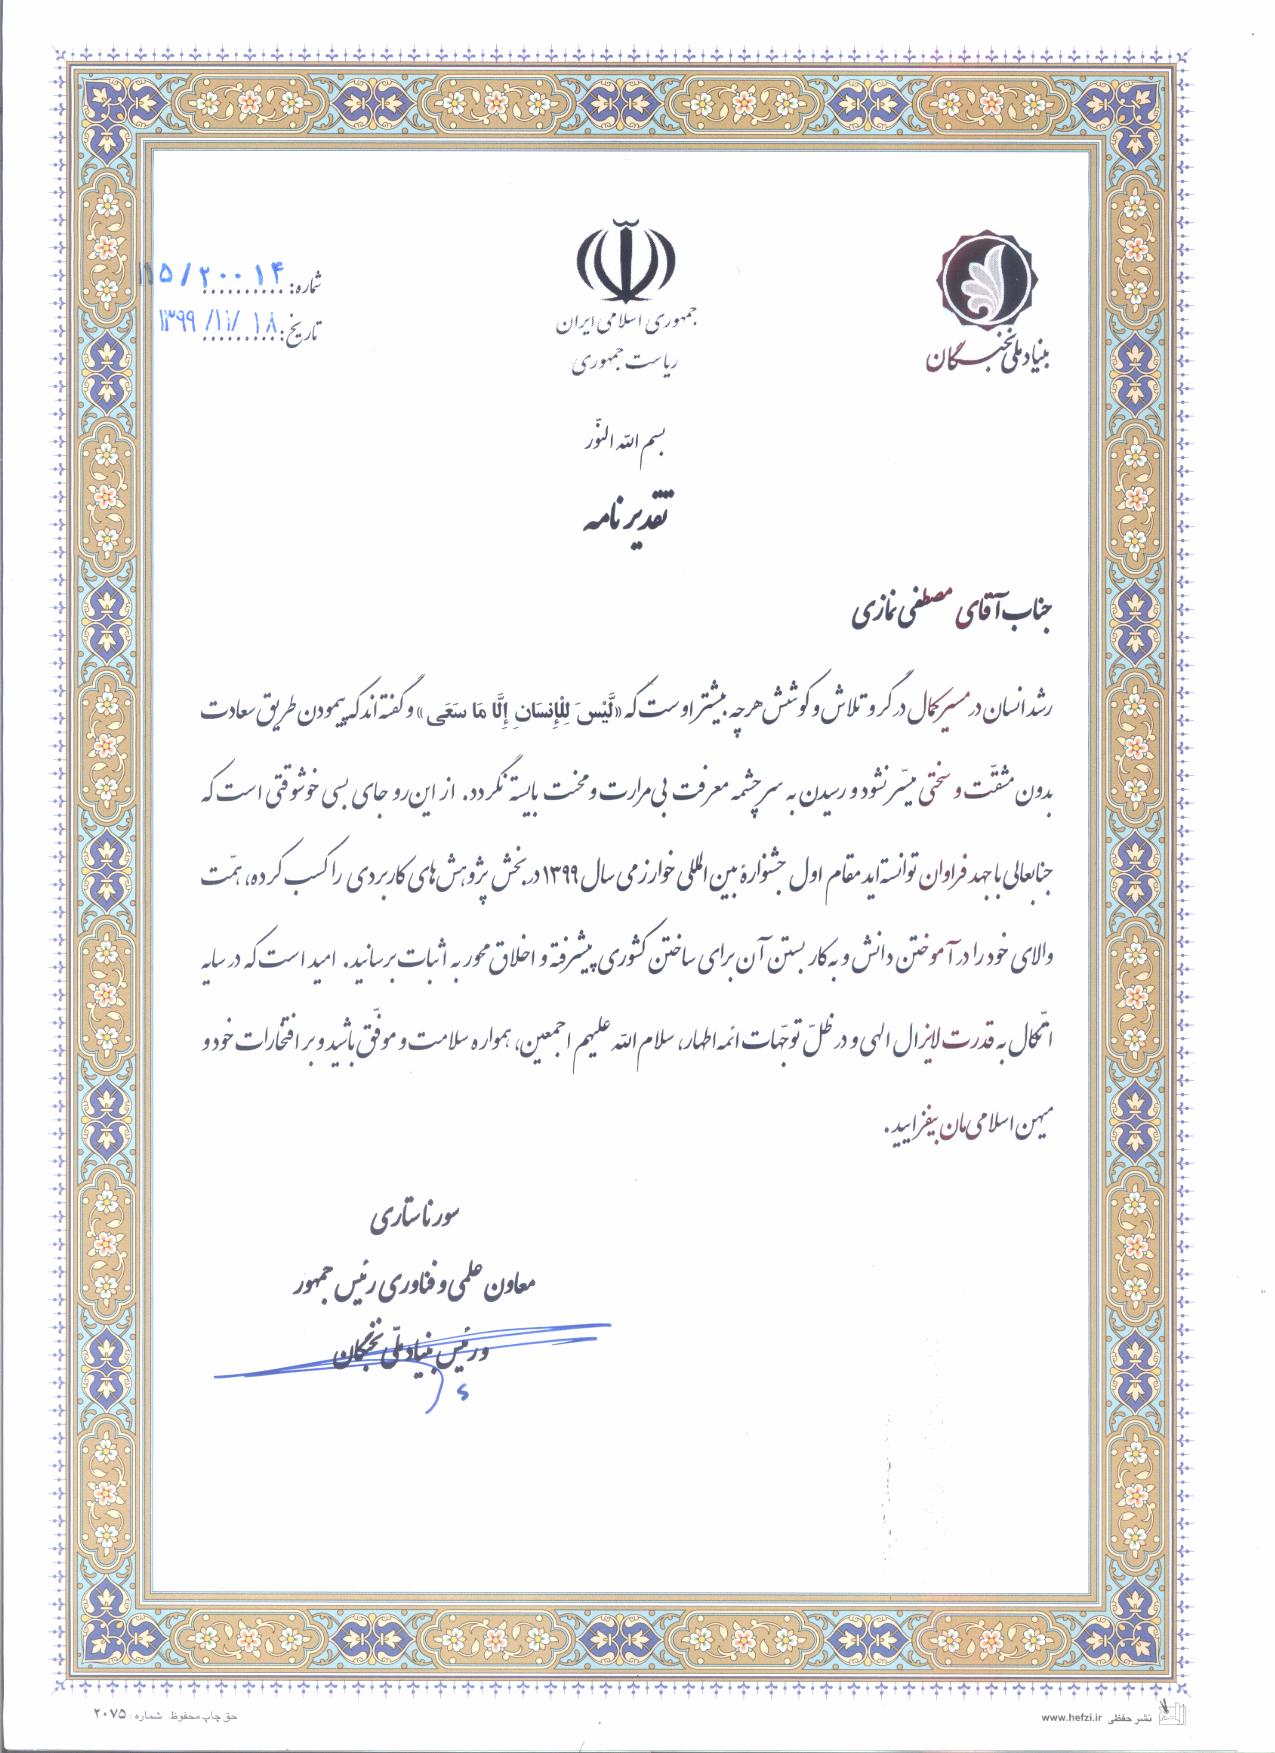 بنیاد ملی نخبگان
جمهوری اسلامی ایران
ریاست جمهوری
شماره: ۱۵/۲۰۰۱۴
تاریخ: ۱۳۹۹/۱۱/۱۸
بسم الله النّور
تقدیرنامه
جناب آقای مصطفی نمازی
رشد انسان در مسیر کمال در گرو تلاش و کوشش هرچه بیشتر اوست که «لَّيْسَ لِلْإِنسَانِ إِلَّا مَا سَعَى» و گفته‌اند که پیمودن طریق سعادت
بدون مشقّت و سختی میسّر نشود و رسیدن به سرچشمه معرفت بی‌مرارت و محنت بایسته نگردد. از این‌رو جای بسی خوشوقتی است که
جنابعالی با جهد فراوان توانسته‌اید مقام اول جشنوارهٔ بین‌المللی خوارزمی سال ۱۳۹۹ در بخش پژوهش‌های کاربردی را کسب کرده، همّت
والای خود را در آموختن دانش و به‌کار بستن آن برای ساختن کشوری پیشرفته و اخلاق محور به اثبات برسانید. امید است که در سایه
اتّکال به قدرت لایزال الهی و در ظلّ توجّهات ائمه اطهار، سلام الله علیهم اجمعین، همواره سلامت و موفّق باشید و بر افتخارات خود و
میهن اسلامی‌مان بیفزایید.
سورنا ستاری
معاون علمی و فناوری رئیس جمهور
و رئیس بنیاد ملّی نخبگان
نشر حفظی www.hefzi.ir
حق چاپ محفوظ شماره: ۲۰۷۵